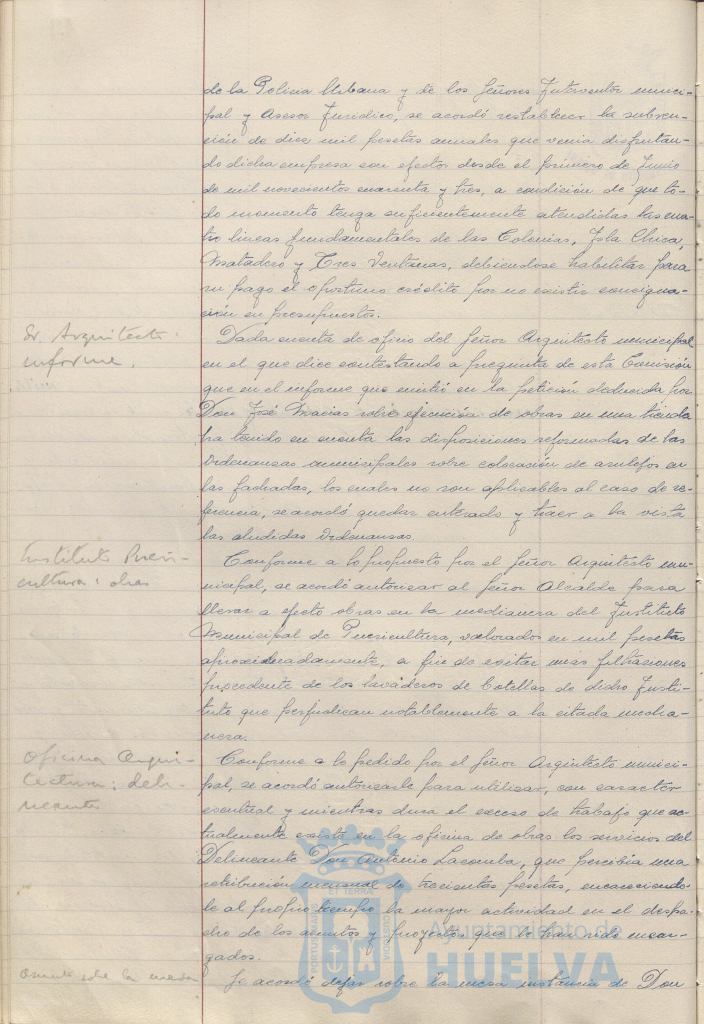 de la Policia Urbana y de los Señores Interventor munici-
pal y Asesor Juridico, se acordó restablecer la subven-
ción de diez mil pesetas anuales que venia disfrutan-
do dicha empresa con efectos desde el primero de Junio
de mil novecientos cuarenta y tres, a condición de que to-
do momento tenga suficientemente atendidas las cua-
tro lineas fundamentales de las Colonias, Isla Chica,
Matadero y Tres Ventanas, debiendose habilitar para
su pago el oportuno crédito por no existir consigna-
ción en presupuestos.
Sr Arquitecto
informe.
Dada cuenta de oficio del Señor Arquitecto municipal
en el que dice contestando a pregunta de esta Comisión
que en el informe que emitió en la petición deducida por
Don José Macias sobre ejecución de obras en una tienda
ha tenido en cuenta las disposiciones reformadas de las
Ordenanzas municipales sobre colocación de azulejos en
las fachadas, los cuales no son aplicables al caso de re-
ferencia, se acordó quedar enterado y traer a la vista
las aludidas Ordenanzas.
Instituto Pueri-
cultura: obras
Conforme a lo propuesto por el Señor Arquitecto mu-
nicipal, se acordó autorizar al Señor Alcalde para
llevar a efecto obras en la medianera del Instituto
Municipal de Puericultura, valorados en mil pesetas
aproximadamente, a fin de evitar mas filtraciones
procedente de los lavaderos de botellas de dicho Insti-
tuto que perjudican notablemente a la citada media-
nera.
Oficina Arqui-
tectura: deli-
neante
Conforme a lo pedido por el Señor Arquitecto munici-
pal, se acordó autorizarle para utilizar, con caracter
eventual y mientras dura el exceso de trabajo que ac-
tualmente existe en la oficina de obras los servicios del
Delineante Don Antonio Lacomba, que percibia una
retribución mensual de trecientas pesetas, encareciendo-
le al propio tiempo la mayor actividad en el despa-
cho de los asuntos y proyectos que le han sido encar-
gados.
Asunto sobre la mesa
Se acordó dejar sobre la mesa instancia de Don
Ayuntamiento de
HUELVA